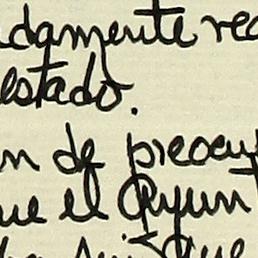 damente rec
estado.
n de preocu
ue el Ayunt
que